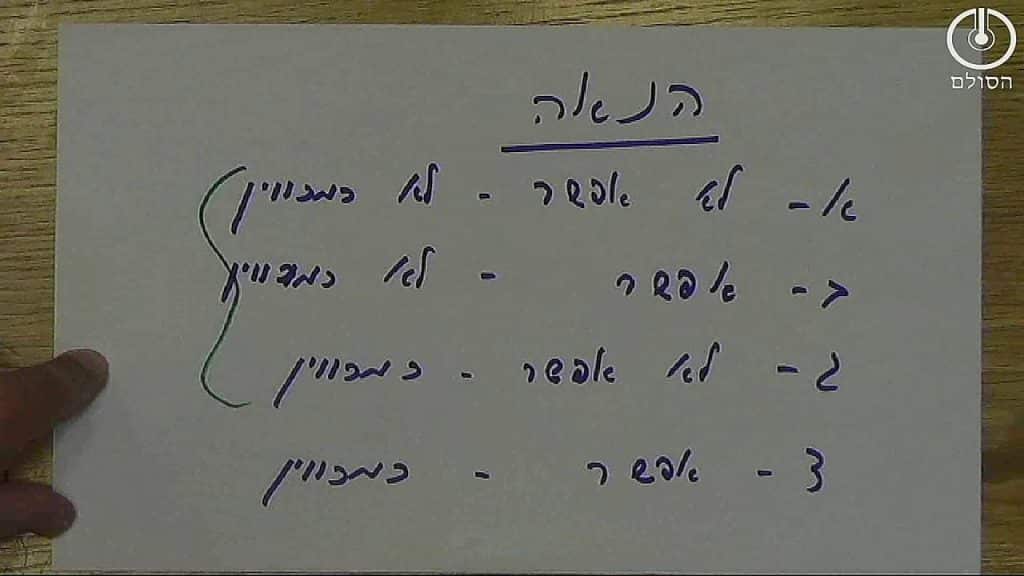 הסולם
הנאה
א - לא אפשר - לא כמכווין
ב - אפשר - לא כמכווין
ג - לא אפשר - כמכווין
ד - אפשר - כמכווין